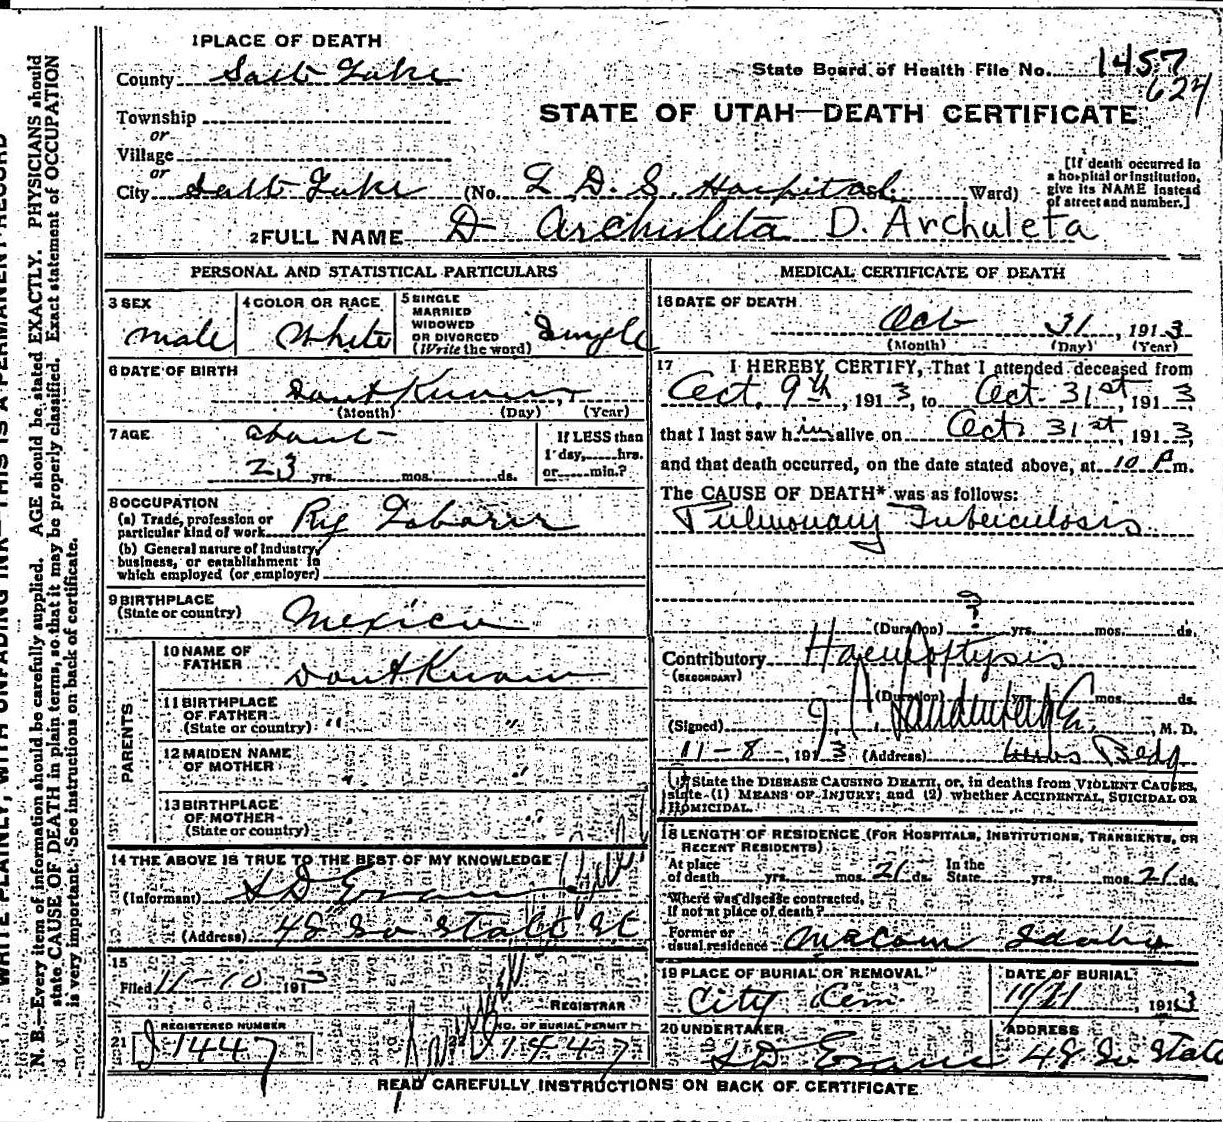 1 PLACE OF DEATH
County Salt Lake
State Board of Health File No. 1457
624
STATE OF UTAH—DEATH CERTIFICATE
Township
or
Village
or
City Salt Lake (No. L. D. S. Hospital St. Ward)
[If death occurred in a hospital or institution, give its NAME instead of street and number.]
2 FULL NAME D Archuleta D. Archuleta
PERSONAL AND STATISTICAL PARTICULARS
3 SEX
male
4 COLOR OR RACE
White
5 SINGLE
MARRIED
WIDOWED
OR DIVORCED
(Write the word)
Single
6 DATE OF BIRTH
Dont Know
(Month) (Day) (Year)
7 AGE
about
23 yrs. mos. ds.
If LESS than
1 day, hrs.
or min.?
8 OCCUPATION
(a) Trade, profession or
particular kind of work
Laborer
(b) General nature of Industry,
business, or establishment in
which employed (or employer)
9 BIRTHPLACE
(State or country)
Mexico
PARENTS
10 NAME OF
FATHER
Dont Know
11 BIRTHPLACE
OF FATHER
(State or country)
" "
12 MAIDEN NAME
OF MOTHER
13 BIRTHPLACE
OF MOTHER
(State or country)
14 THE ABOVE IS TRUE TO THE BEST OF MY KNOWLEDGE
(Informant) S D Evans
(Address) 48 So State St
15
Filed 11-10 1913
REGISTRAR
REGISTERED NUMBER
21 1447
NO. OF BURIAL PERMIT
1447
MEDICAL CERTIFICATE OF DEATH
16 DATE OF DEATH
Oct 31, 1913
(Month) (Day) (Year)
17 I HEREBY CERTIFY, That I attended deceased from
Oct. 9th, 1913, to Oct. 31st, 1913
that I last saw him alive on Oct. 31st, 1913,
and that death occurred, on the date stated above, at 10 P m.
The CAUSE OF DEATH* was as follows:
Pulmonary Tuberculosis
?
(Duration) yrs. mos. ds.
Contributory Haemoptysis
(SECONDARY)
(Duration) yrs. mos. ds.
(Signed) M. D.
11-8, 1913 (Address) Bldg
(*) State the DISEASE CAUSING DEATH, or, in deaths from VIOLENT CAUSES,
state (1) MEANS OF INJURY; and (2) whether ACCIDENTAL, SUICIDAL OR
HOMICIDAL.
18 LENGTH OF RESIDENCE (FOR HOSPITALS, INSTITUTIONS, TRANSIENTS, OR
RECENT RESIDENTS)
At place of death yrs. mos. 21 ds. In the State yrs. mos. 21 ds.
Where was disease contracted,
if not at place of death?
Former or
usual residence Idaho
19 PLACE OF BURIAL OR REMOVAL
City Cem.
DATE OF BURIAL
11/21 1913
20 UNDERTAKER
S D Evans
ADDRESS
48 So State
READ CAREFULLY INSTRUCTIONS ON BACK OF CERTIFICATE
WRITE PLAINLY, WITH UNFADING INK—THIS IS A PERMANENT RECORD
N. B.—Every item of information should be carefully supplied. AGE should be stated EXACTLY. PHYSICIANS should
state CAUSE OF DEATH in plain terms, so that it may be properly classified. Exact statement of OCCUPATION
is very important. See instructions on back of certificate.